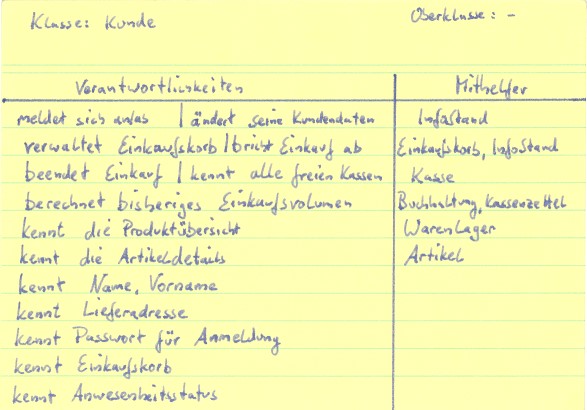 Klasse: Kunde Oberklasse: -
Verantwortlichkeiten Mithelfer
meldet sich an/as | ändert seine Kundendaten InfoStand
verwaltet Einkaufskorb | bricht Einkauf ab Einkaufskorb, InfoStand
beendet Einkauf | kennt alle freien Kassen Kasse
berechnet bisheriges Einkaufsvolumen Buchhaltung, Kassenzettel
kennt die Produktübersicht Warenlager
kennt die Artikeldetails Artikel
kennt Name, Vorname
kennt Lieferadresse
kennt Passwort für Anmeldung
kennt Einkaufskorb
kennt Anwesenheitsstatus